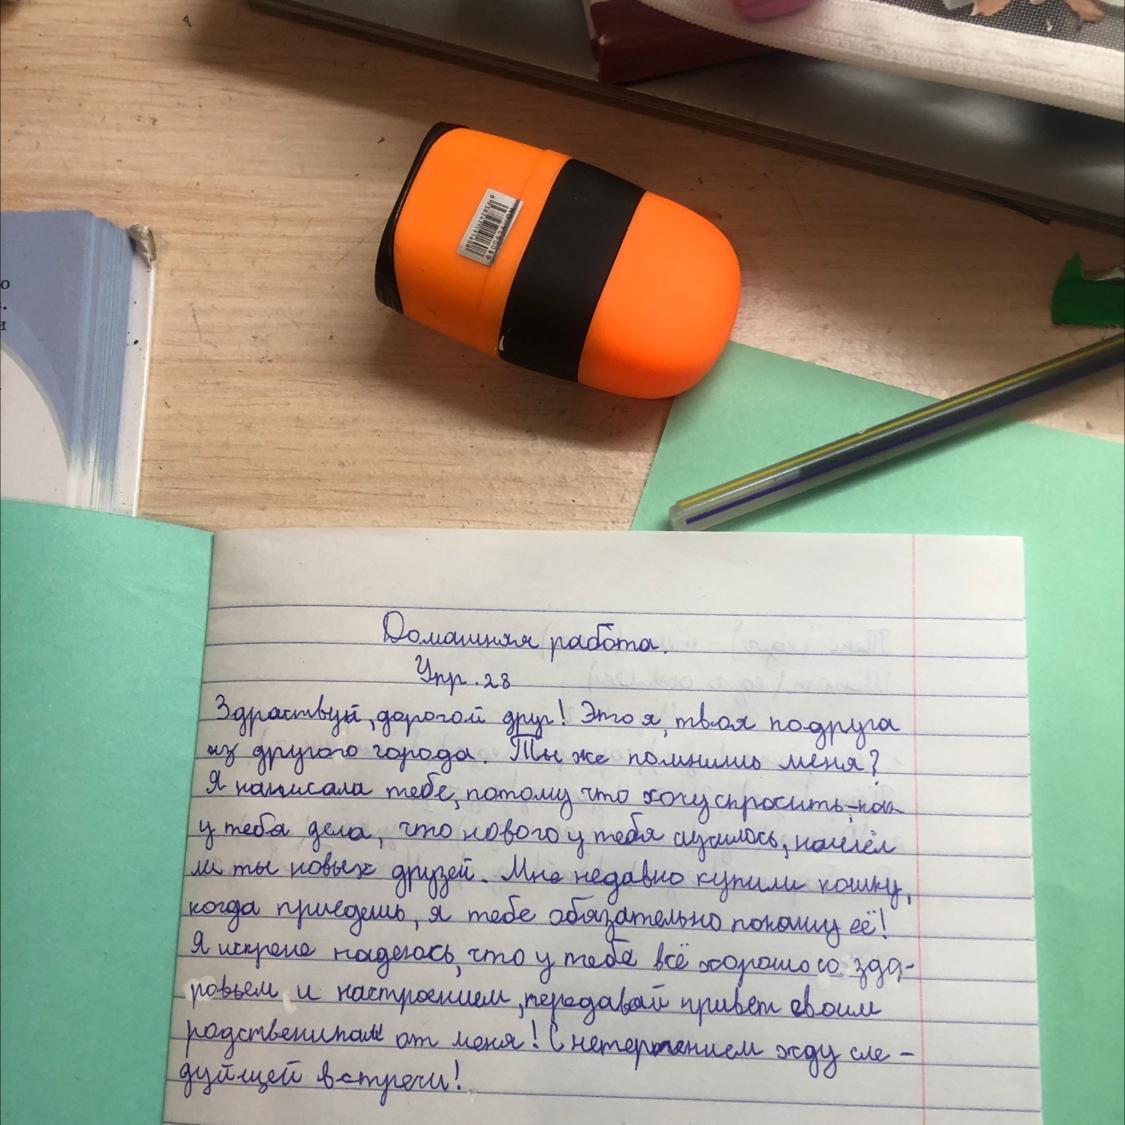 Домашняя работа.
Упр. 28
Здраствуй, дорогой друг! Это я, твоя подруга
из другого города. Ты же помнишь меня?
Я написала тебе, потому что хочу спросить, как
у тебя дела, что нового у тебя случилось, нашёл
ли ты новых друзей. Мне недавно купили кошку,
когда приедешь, я тебе обязательно покажу её!
Я искрене надеюсь, что у тебя всё хорошо со здо-
ровьем, и настроением, передавай привет своим
родственикам от меня! С нетерпением жду сле-
дуйщей встречи!
о
.
и